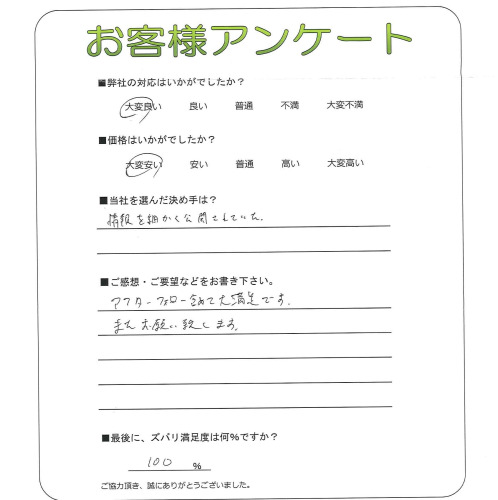 お客様アンケート
■弊社の対応はいかがでしたか?
大変良い 良い 普通 不満 大変不満
■価格はいかがでしたか?
大変安い 安い 普通 高い 大変高い
■当社を選んだ決め手は?
情報を細かく公開されていた。
■ご感想・ご要望などをお書き下さい。
アフターフォロー含めて大満足です。
またお願い致します。
■最後に、ズバリ満足度は何%ですか?
100 %
ご協力頂き、誠にありがとうございました。